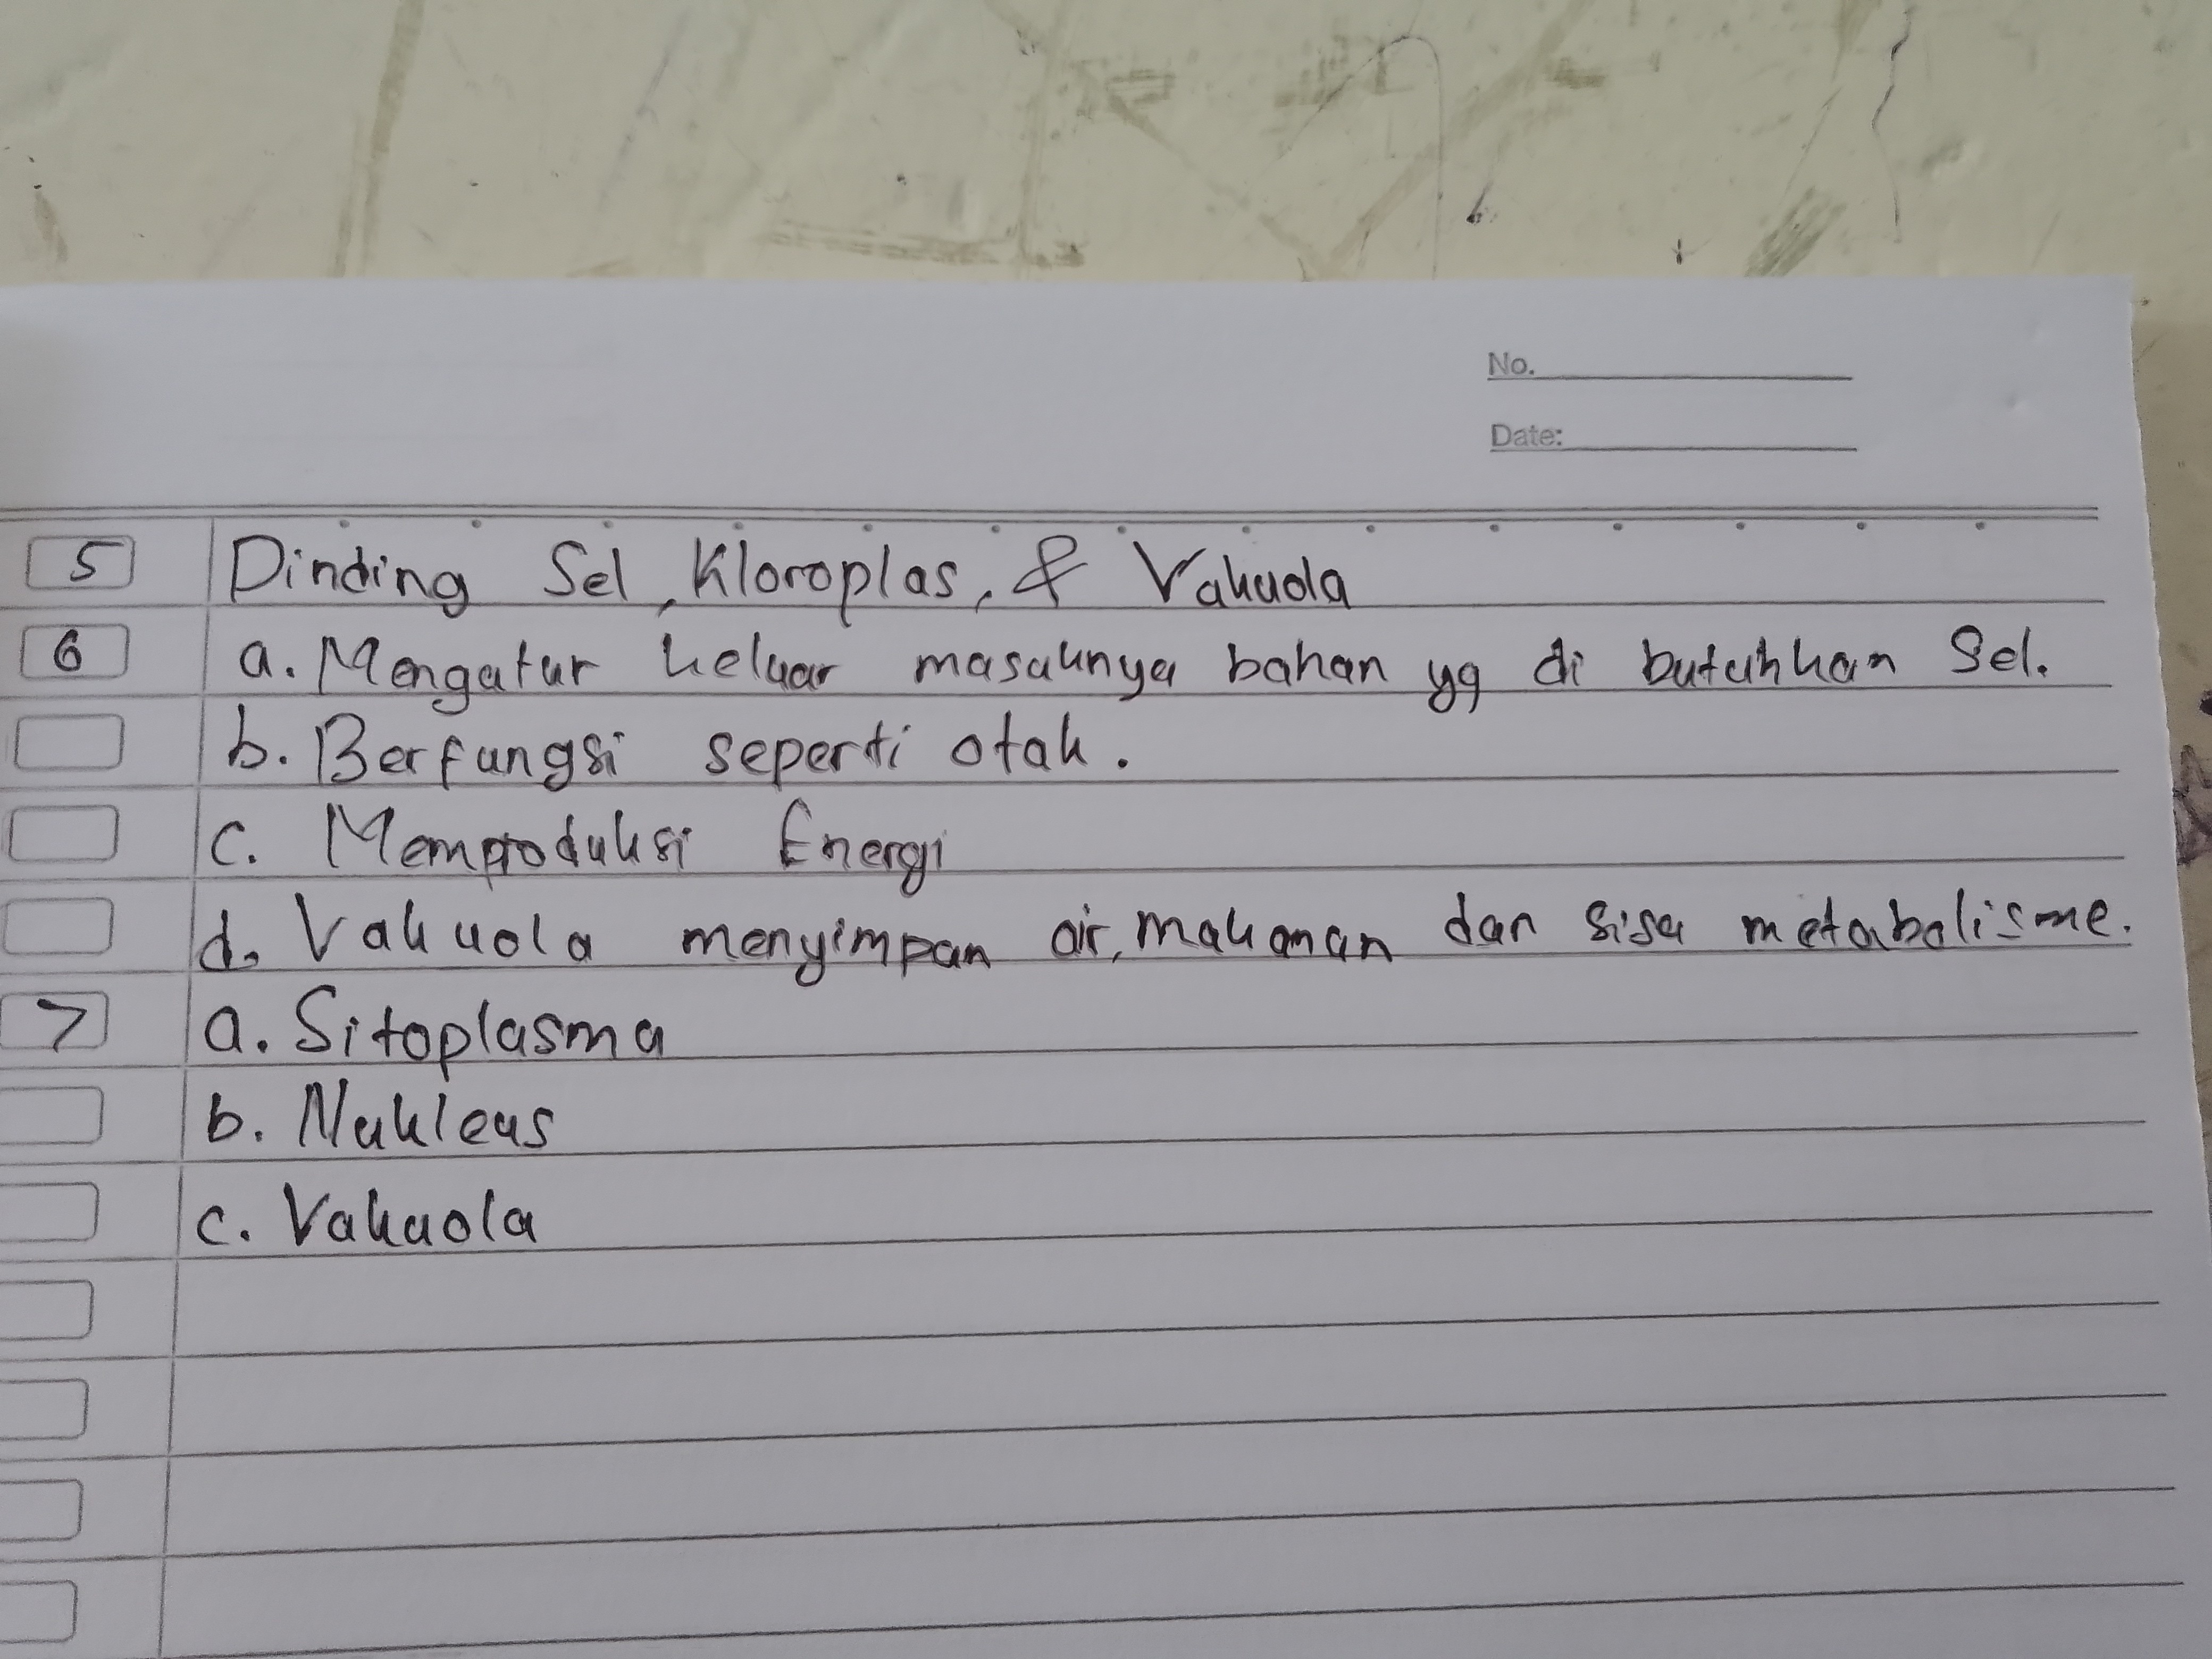 No.
Date:
5 Dinding Sel, Kloroplas, & Vakuola
6 a. Mengatur keluar masuknya bahan yg di butuhkan Sel.
b. Berfungsi seperti otak.
c. Memproduksi Energi
d. Vakuola menyimpan air, makanan dan sisa metabolisme.
7 a. Sitoplasma
b. Nukleus
c. Vakuola